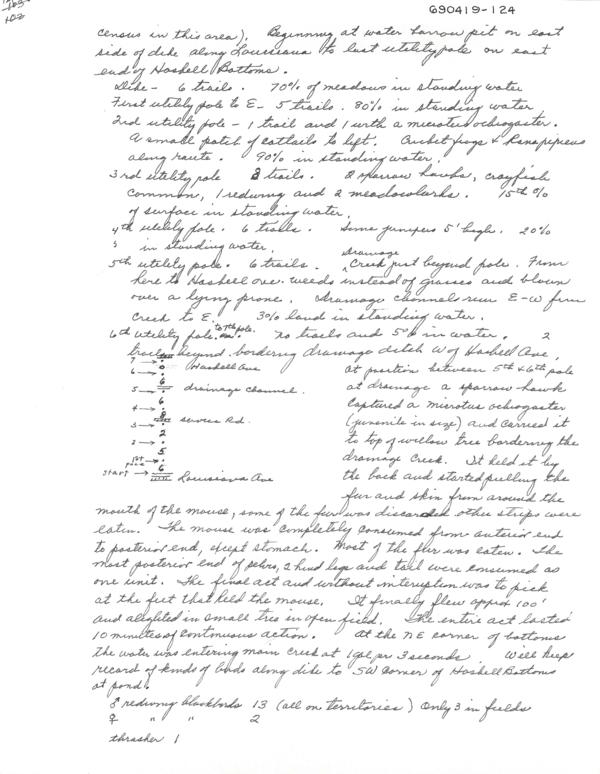 690419-124
census in this area). Beginning at water harrow pit on east
side of dike along Louisiana to last utility pole on east
end of Haskell Bottoms.
Dike - 6 trails. 70% of meadows in standing water
First utility pole to E - 5 trails. 80% in standing water
2nd utility pole - 1 trail and 1 with a microtus ochrogaster.
A small patch of cattails to left. Cricket frogs & Rana pipiens
along route. 90% in standing water.
3rd utility pole 3 trails. 2 sparrow hawks, crayfish
common, 1 redwing and 2 meadowlarks. 15th %
of surface in standing water.
4th utility pole. 6 trails. Some junipers 5' high. 20%
in standing water.
5th utility pole. 6 trails. Drainage Creek just beyond pole. From
here to Haskell Ave. weeds instead of grasses and blown
over a lying prone. Drainage channels run E-W from
Creek to E. 30% land in standing water.
6th utility pole to 7th pole. No trails and 5% in water. 2
trails beyond bordering drainage ditch W of Haskell Ave,
7 → Haskell Ave
6 →
5 → drainage channel.
4 →
3 → service Rd.
2 →
1st pole →
start → Louisiana Ave
At position between 5th & 6th pole
at drainage a sparrow hawk
captured a microtus ochrogaster
(juvenile in size) and carried it
to top of willow tree bordering the
drainage Creek. It held it by
the back and started pulling the
fur and skin from around the
mouth of the mouse, some of the fur was discarded other strips were
eaten. The mouse was completely consumed from anterior end
to posterior end, except stomach. Most of the fur was eaten. The
most posterior end of pelvis, 2 hind legs and tail were consumed as
one unit. The final act and without interuption was to pick
at the feet that held the mouse. It finally flew approx 100'
and alighted in small tree in open field. The entire act lasted
10 minutes of continuous action. At the NE corner of bottoms
the water was entering main creek at 1 gal per 3 seconds Will keep
record of kinds of birds along dike to SW corner of Haskell Bottoms
at pond.
♂ redwing blackbirds 13 (all on territories) Only 3 in fields
♀ " " 2
thrasher 1